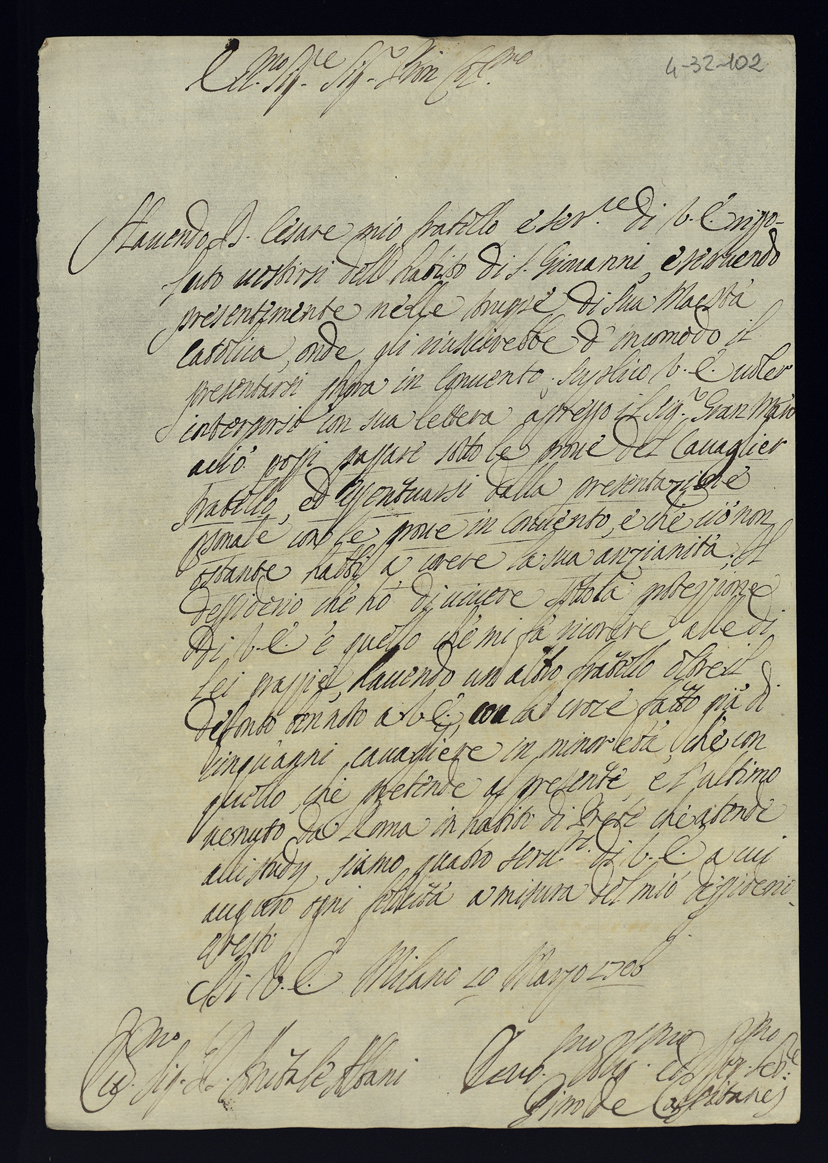 Ecc.mo Sig.re Sig.r Pron Col.mo
4-32-102
Havendo D. Cesare mio fratello e ser.re di V. E. riso-
luto vestirsi dell'habito di S. Giovanni, e servendo
presentimente nelle truppe di Sua Maestà
Catolica, onde gli riuscirebbe d'incomodo il
presentarsi hora in Convento. Suplico V. E. voler
interporsi con sua lettera apresso il Sig.r Gran Mastro
acciò possi passare sotto le prove del Cavaglier
fratello, ed esentuarsi dalla presentatione
personale con le prove in Convento, e che ciò non
ostante habbi a correre la sua anzianità; il
desiderio che hò di vivere sotto la protezzione
di V. E. è quello che mi fà ricorere alle di
Lei grazzie, havendo un altro fratello oltre il
defonto ben noto a V. E., con la croce fatto più di
cinqu'agni cavagliere in minor età, che con
quello, che pretende al presente, e l'ultimo
venuto da Roma in habito di Prete che attende
alli studij, siamo quatro servi.ri di V. E. a cui
auguro ogni felicità a misura del mio dessiderio.
e resti
Di V. E. Milano 10 Marzo 1706
Ecc.mo Sig. D. Albani
Devo.mo ed Ob.mo Ser. Ser.e